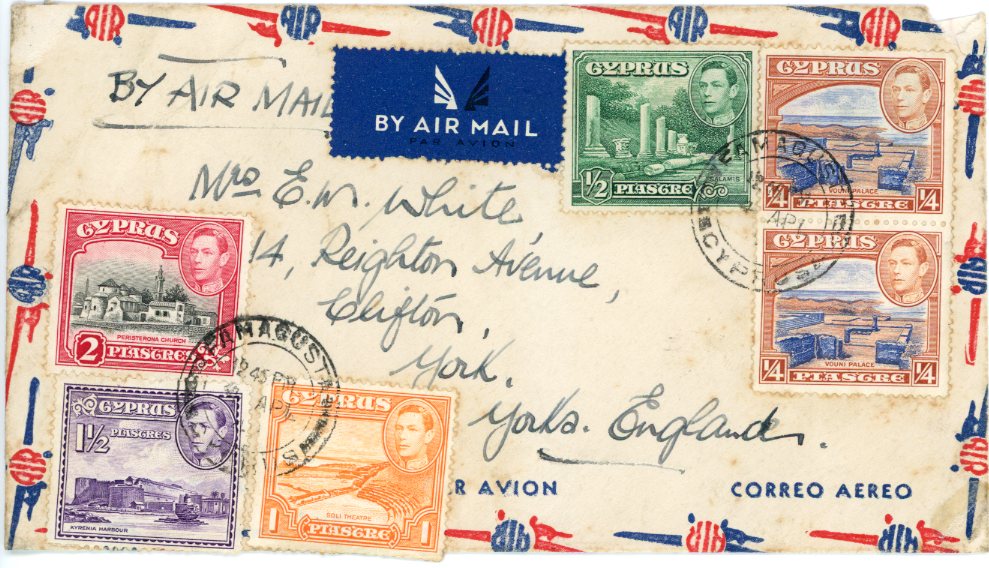 BY AIR MAIL
BY AIR MAIL
PAR AVION
Mrs E.W. White
14, Reighton Avenue,
Clifton,
York.
Yorks. England.
CYPRUS
1/2 PIASTRE
SALAMIS
CYPRUS
VOUNI PALACE
1/4 PIASTRE 1/4
CYPRUS
VOUNI PALACE
1/4 PIASTRE 1/4
FAMAGUSTA
AP
CYPRUS
CYPRUS
PERISTERONA CHURCH
2 PIASTRES
CYPRUS
1 1/2 PIASTRES
KYRENIA HARBOUR
CYPRUS
SOLI THEATRE
1 PIASTRE 1
FAMAGUSTA
AP
R AVION
CORREO AEREO
AIR
AIR
AIR
AIR
AIR
AIR
AIR
AIR